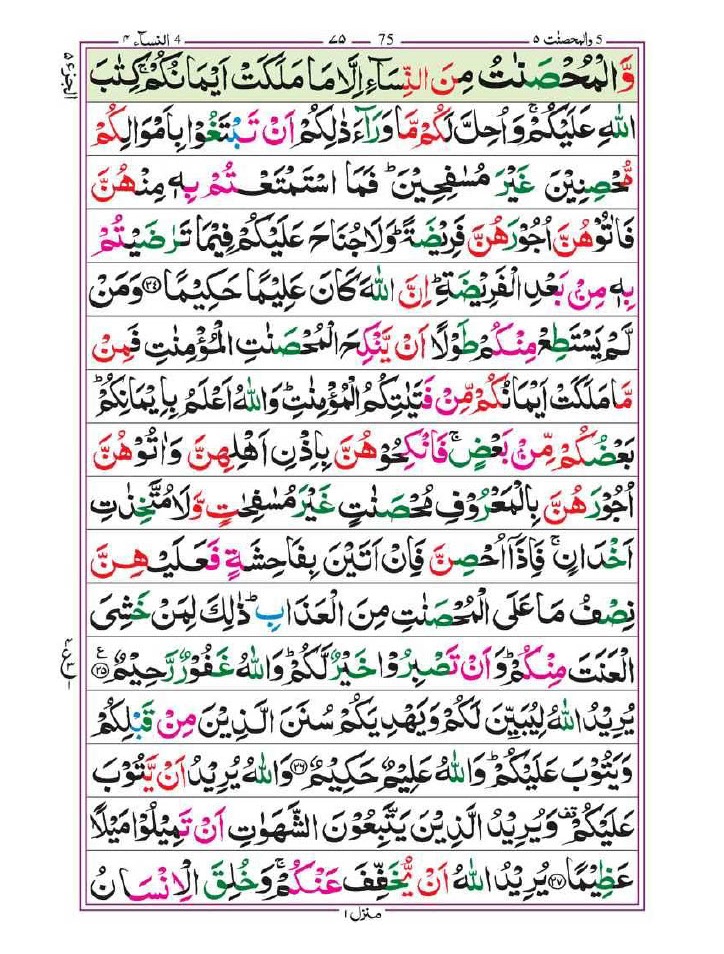 5 والمحصنٰت ۵
75 ۷۵
4 النسآء ۴
الجزء ۵
وَّالْمُحْصَنٰتُ مِنَ النِّسَآءِ اِلَّا مَا مَلَكَتْ اَيْمَانُكُمْ ۚ كِتٰبَ
اللّٰهِ عَلَيْكُمْ ۚ وَاُحِلَّ لَكُمْ مَّا وَرَآءَ ذٰلِكُمْ اَنْ تَبْتَغُوْا بِاَمْوَالِكُمْ
مُّحْصِنِيْنَ غَيْرَ مُسٰفِحِيْنَ ؕ فَمَا اسْتَمْتَعْتُمْ بِهٖ مِنْهُنَّ
فَاٰتُوْهُنَّ اُجُوْرَهُنَّ فَرِيْضَةً ؕ وَلَا جُنَاحَ عَلَيْكُمْ فِيْمَا تَرٰضَيْتُمْ
بِهٖ مِنْۢ بَعْدِ الْفَرِيْضَةِ ؕ اِنَّ اللّٰهَ كَانَ عَلِيْمًا حَكِيْمًا ﴿۲۴﴾ وَمَنْ
لَّمْ يَسْتَطِعْ مِنْكُمْ طَوْلًا اَنْ يَّنْكِحَ الْمُحْصَنٰتِ الْمُؤْمِنٰتِ فَمِنْ
مَّا مَلَكَتْ اَيْمَانُكُمْ مِّنْ فَتَيٰتِكُمُ الْمُؤْمِنٰتِ ؕ وَاللّٰهُ اَعْلَمُ بِاِيْمَانِكُمْ ؕ
بَعْضُكُمْ مِّنْۢ بَعْضٍ ۚ فَانْكِحُوْهُنَّ بِاِذْنِ اَهْلِهِنَّ وَاٰتُوْهُنَّ
اُجُوْرَهُنَّ بِالْمَعْرُوْفِ مُحْصَنٰتٍ غَيْرَ مُسٰفِحٰتٍ وَّلَا مُتَّخِذٰتِ
اَخْدَانٍ ۚ فَاِذَاۤ اُحْصِنَّ فَاِنْ اَتَيْنَ بِفَاحِشَةٍ فَعَلَيْهِنَّ
نِصْفُ مَا عَلَى الْمُحْصَنٰتِ مِنَ الْعَذَابِ ؕ ذٰلِكَ لِمَنْ خَشِىَ
الْعَنَتَ مِنْكُمْ ؕ وَاَنْ تَصْبِرُوْا خَيْرٌ لَّكُمْ ؕ وَاللّٰهُ غَفُوْرٌ رَّحِيْمٌ ﴿۲۵﴾ ع
يُرِيْدُ اللّٰهُ لِيُبَيِّنَ لَكُمْ وَيَهْدِيَكُمْ سُنَنَ الَّذِيْنَ مِنْ قَبْلِكُمْ
وَيَتُوْبَ عَلَيْكُمْ ؕ وَاللّٰهُ عَلِيْمٌ حَكِيْمٌ ﴿۲۶﴾ وَاللّٰهُ يُرِيْدُ اَنْ يَّتُوْبَ
عَلَيْكُمْ قف وَيُرِيْدُ الَّذِيْنَ يَتَّبِعُوْنَ الشَّهَوٰتِ اَنْ تَمِيْلُوْا مَيْلًا
عَظِيْمًا ﴿۲۷﴾ يُرِيْدُ اللّٰهُ اَنْ يُّخَفِّفَ عَنْكُمْ ۚ وَخُلِقَ الْاِنْسَانُ
منزل ۱